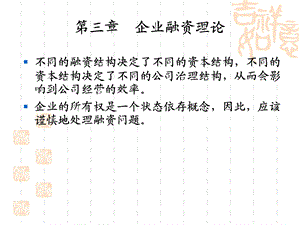 第三章　企业融资理论
不同的融资结构决定了不同的资本结构，不同的
资本结构决定了不同的公司治理结构，从而会影
响到公司经营的效率。
企业的所有权是一个状态依存概念，因此，应该
谨慎地处理融资问题。
吉祥如意